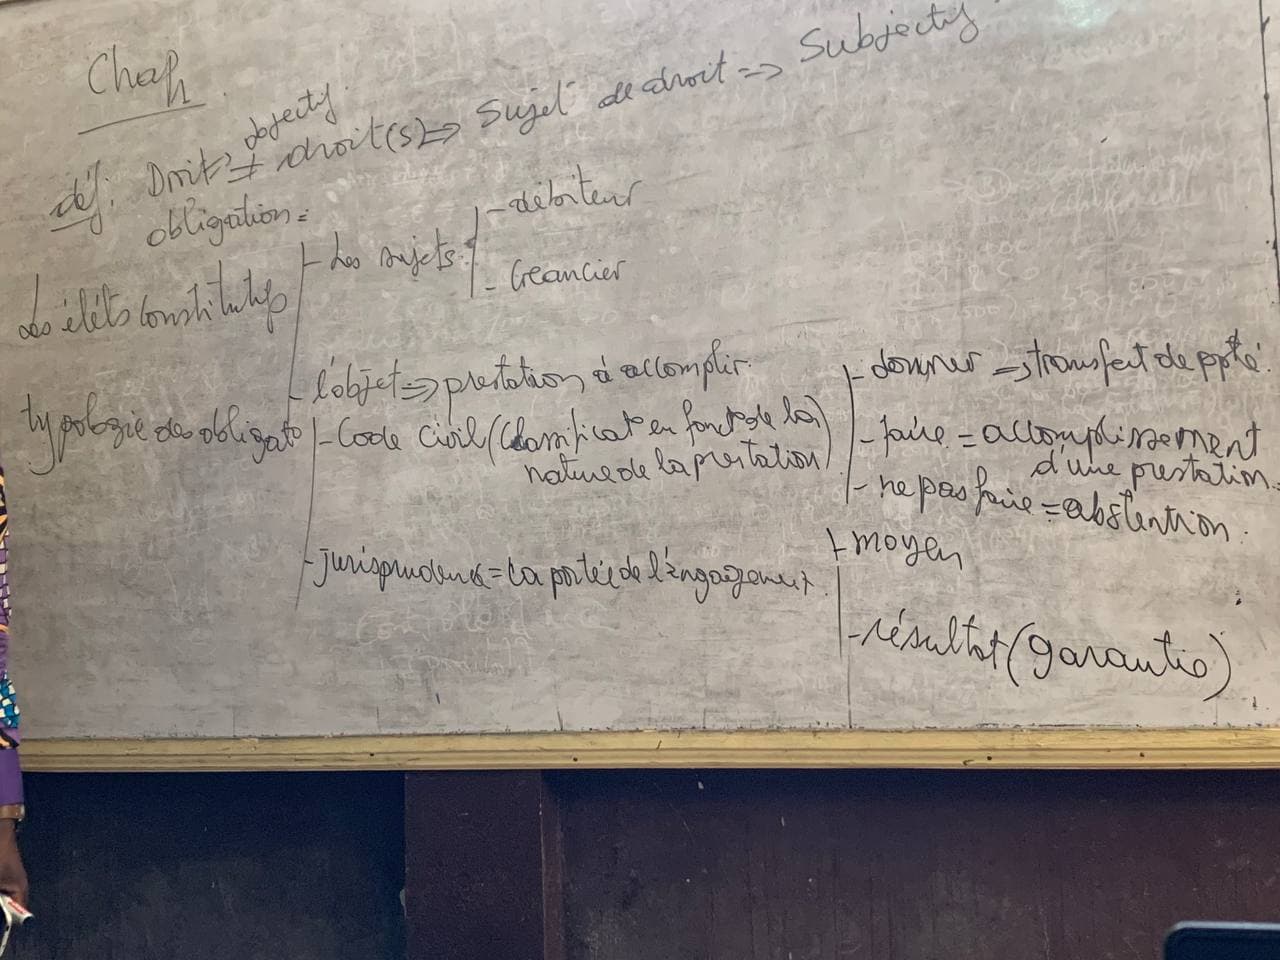 Chap
déf: Droit objectif ≠ droit(s) => Sujet de droit => Subjectif
obligation =
Les élêts constitutifs
- Les sujets:
- débiteur
- Créancier
- l'objet => prestation à accomplir.
typologie des obligato
- Code civil (Classificato en fonct° de la
nature de la prestation)
- donner => transfert de ppté.
- faire = accomplissement
d'une prestation.
- ne pas faire = abstention.
- jurisprudence = la portée de l'engagement.
- moyen
- résultat (garantie)